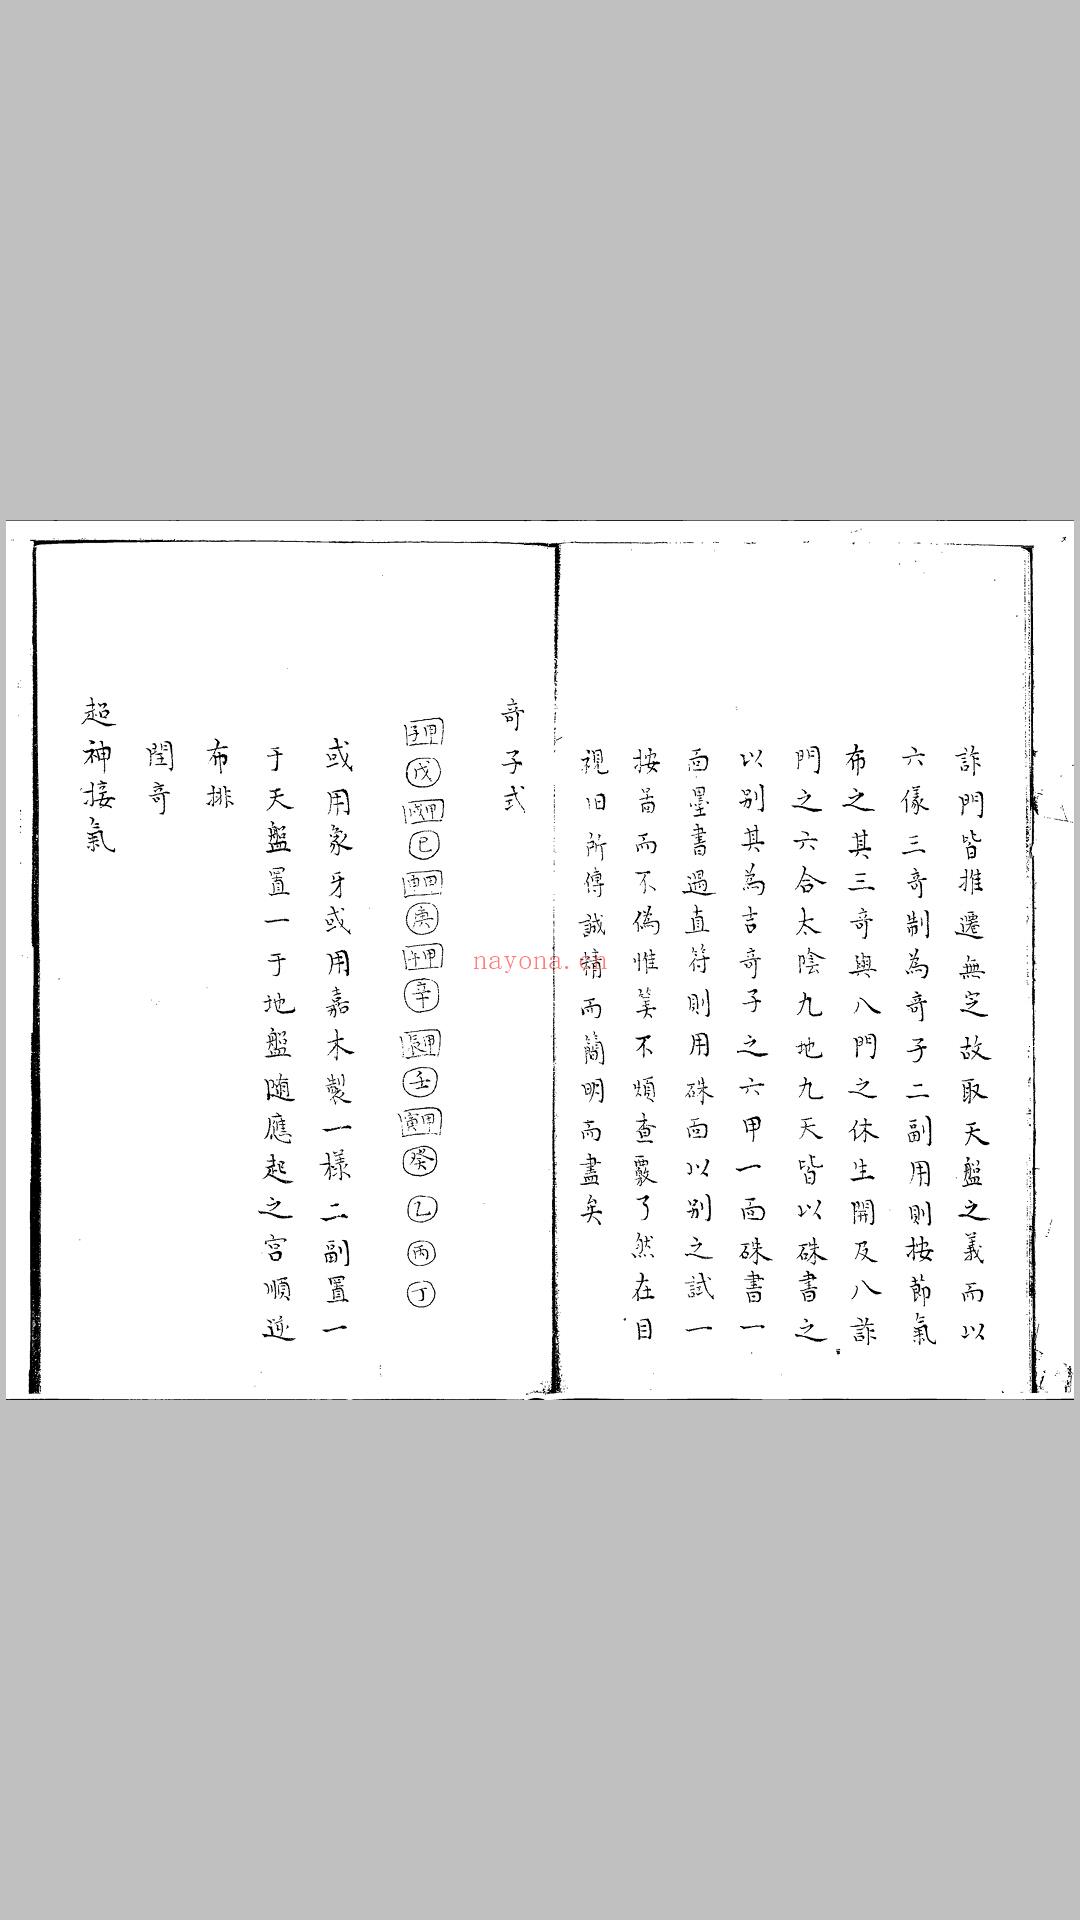 詐門皆推遷無定故取天盤之義而以
六儀三奇制為奇子二副用則按節氣
布之其三奇與八門之休生開及八詐
門之六合太陰九地九天皆以硃書之
以别其為吉奇子之六甲一面硃書一
面墨書遇直符則用硃面以别之試一
按啚而不偽惟筭不煩查覈了然在目
視旧所傳誠精而簡明而盡矣
奇子式
甲子 戊 甲戌 己 甲申 庚 甲午 辛 甲辰 壬 甲寅 癸 乙 丙 丁
或用象牙或用嘉木製一樣二副置一
于天盤置一于地盤随應起之宮順逆
布排
閏奇
超神接氣
nayona.cn